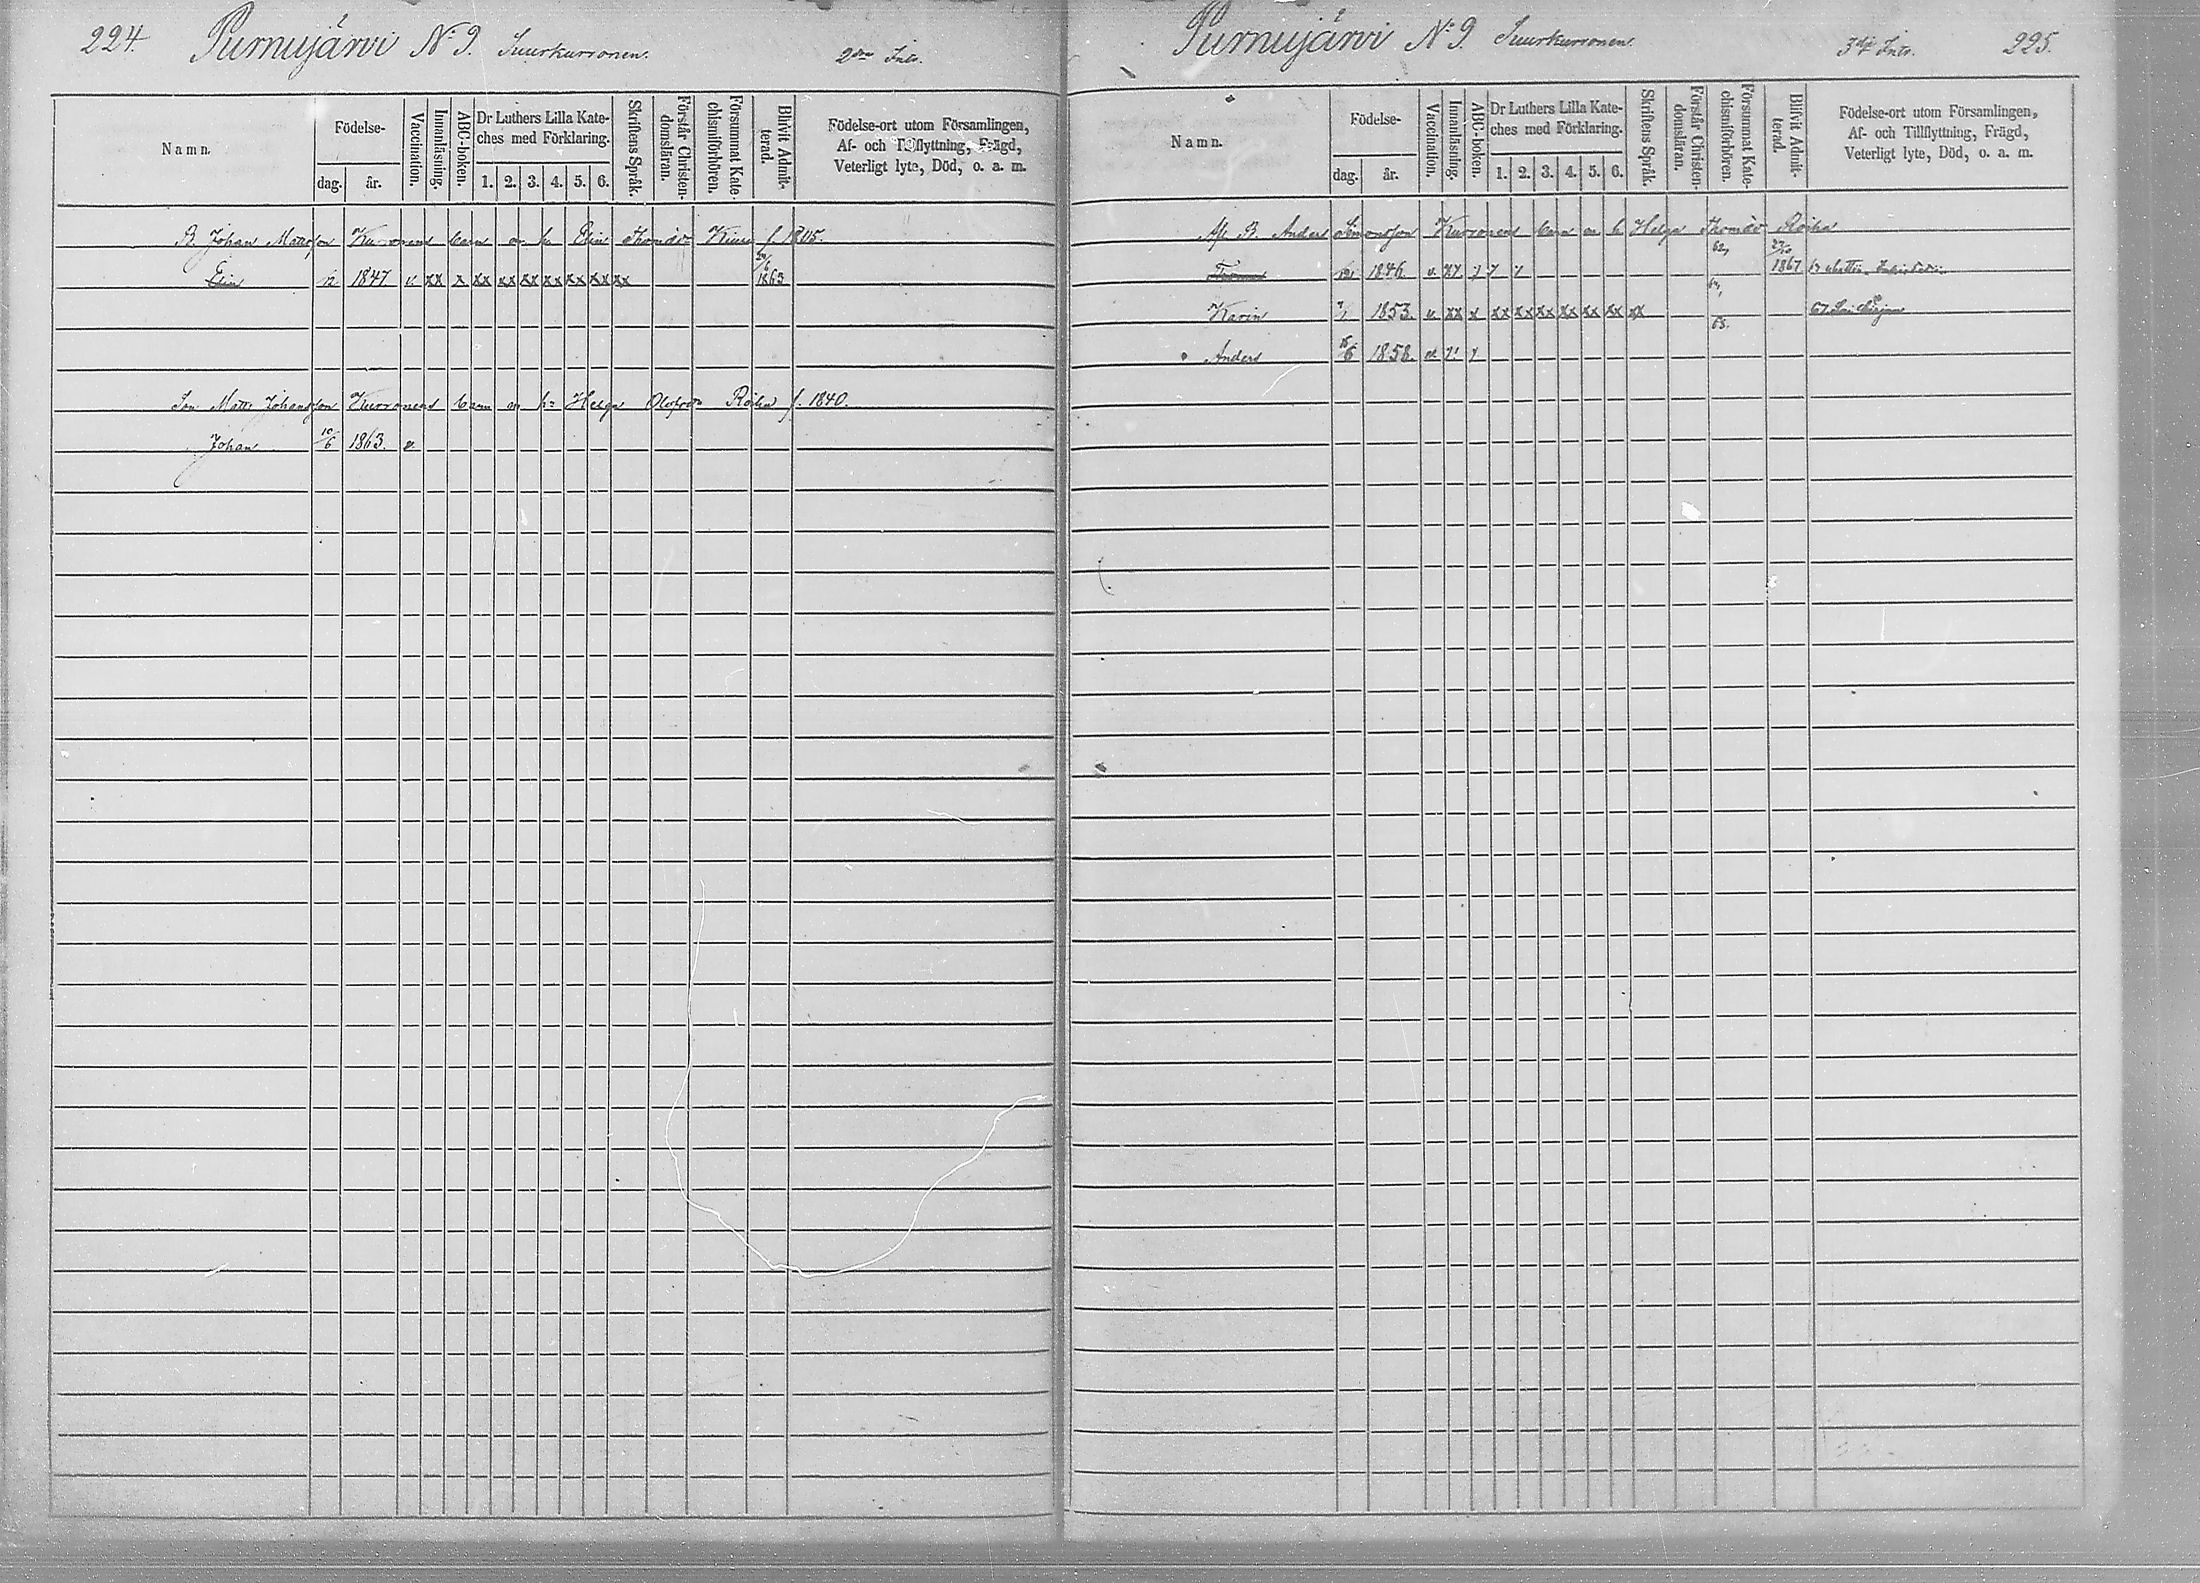 224. Purnujärvi No 9. Suurkurronen. 2dra Intr.
Namn.
Födelse-
dag.
år.
Vaccination.
Innanläsning.
ABC-boken.
Dr Luthers Lilla Kate-
ches med Förklaring.
1. 2. 3. 4. 5. 6.
Skriftens Språk.
Förstår Christen-
domsläran.
Försummat Kate-
chismiförhören.
Blivit Admit-
terad.
Födelse-ort utom Församlingen,
Af- och Tillflyttning, Frägd,
Veterligt lyte, Död, o. a. m.
B. Johan Mattsson Kurronens barn m h: Elin Thomdr f. 1815.
Elin 12 1847 v. xx x xx xx xx xx xx xx xx 1863
Son Matts Johansson Kurronens barn m h: Helga Olofsdr Röihä f. 1840.
Johan 10/6 1863. v.
Purnujärvi No 9. Suurkurronen. 3dje Intr. 225.
Namn.
Födelse-
dag.
år.
Vaccination.
Innanläsning.
ABC-boken.
Dr Luthers Lilla Kate-
ches med Förklaring.
1. 2. 3. 4. 5. 6.
Skriftens Språk.
Förstår Christen-
domsläran.
Försummat Kate-
chismiförhören.
Blivit Admit-
terad.
Födelse-ort utom Församlingen,
Af- och Tillflyttning, Frägd,
Veterligt lyte, Död, o. a. m.
B. Anders Simonsson Kurronens barn m h Helga Thomdr Röihä
1846. v. 62, 1867
Karin 1853. v. xx x xx xx xx xx xx xx xx 64,
Anders 1858. 65.